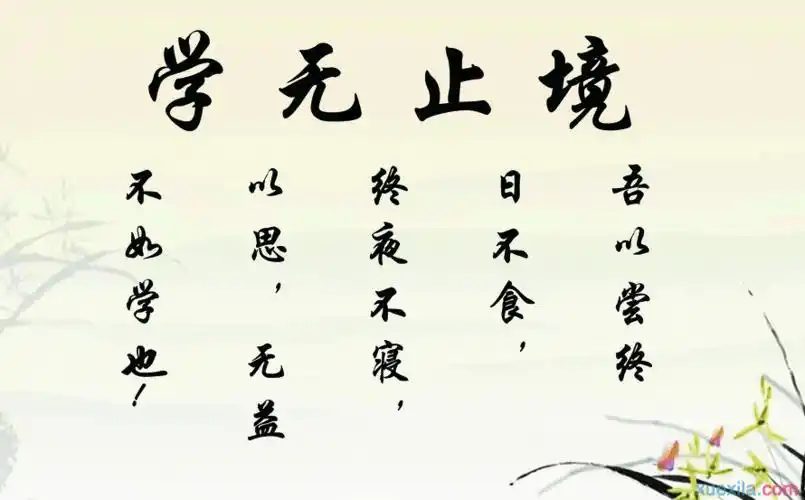 学无止境
吾以尝终
日不食，
终夜不寝，
以思，无益
不如学也！
xuexila.com